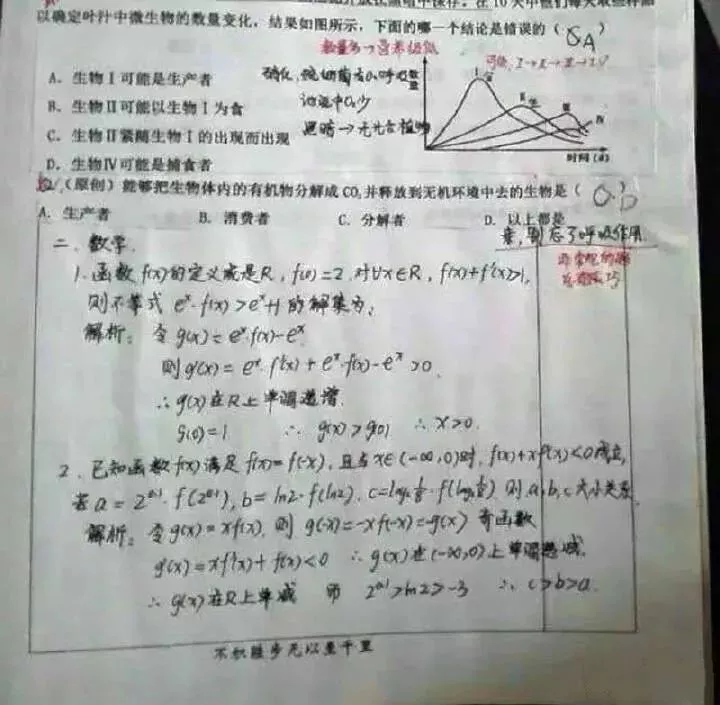 以确定叶汁中微生物的数量变化，结果如图所示，下面的哪一个结论是错误的（ A ）
A. 生物Ⅰ可能是生产者
B. 生物Ⅱ可能以生物Ⅰ为食
C. 生物Ⅱ紧随生物Ⅰ的出现而出现
D. 生物Ⅳ可能是捕食者
数量
时间(d)
Ⅰ
Ⅱ
Ⅲ
Ⅳ
黑暗→无光合植物
（原创）能够把生物体内的有机物分解成 CO₂并释放到无机环境中去的生物是（ D ）
A. 生产者 B. 消费者 C. 分解者 D. 以上都是
别忘了呼吸作用.
二、数学.
1. 函数 f(x)的定义域是R, f(0)=2, 对∀x∈R, f(x)+f'(x)>1,
则不等式 eˣ·f(x)>eˣ+1 的解集为:
解析: 令 g(x)=eˣ·f(x)-eˣ
则g'(x)=eˣ·f'(x)+eˣ·f(x)-eˣ>0.
∴g(x)在R上单调递增.
g(0)=1 ∴ g(x)>g(0) ∴ x>0.
2. 已知函数f(x)满足 f(x)=f(-x), 且当 x∈(-∞,0)时, f(x)+xf'(x)<0成立,
若 a=2^0.1·f(2^0.1), b=ln2·f(ln2), c=log₂⅛·f(log₂⅛) 则a,b,c大小关系.
解析: 令g(x)=xf(x), 则 g(-x)=-xf(-x)=-g(x) 奇函数
g'(x)=xf'(x)+f(x)<0 ∴g(x)在(-∞,0)上单调递减.
∴ g(x)在R上单减 而 2^0.1>ln2>-3 ∴ c>b>a.
不积跬步无以至千里